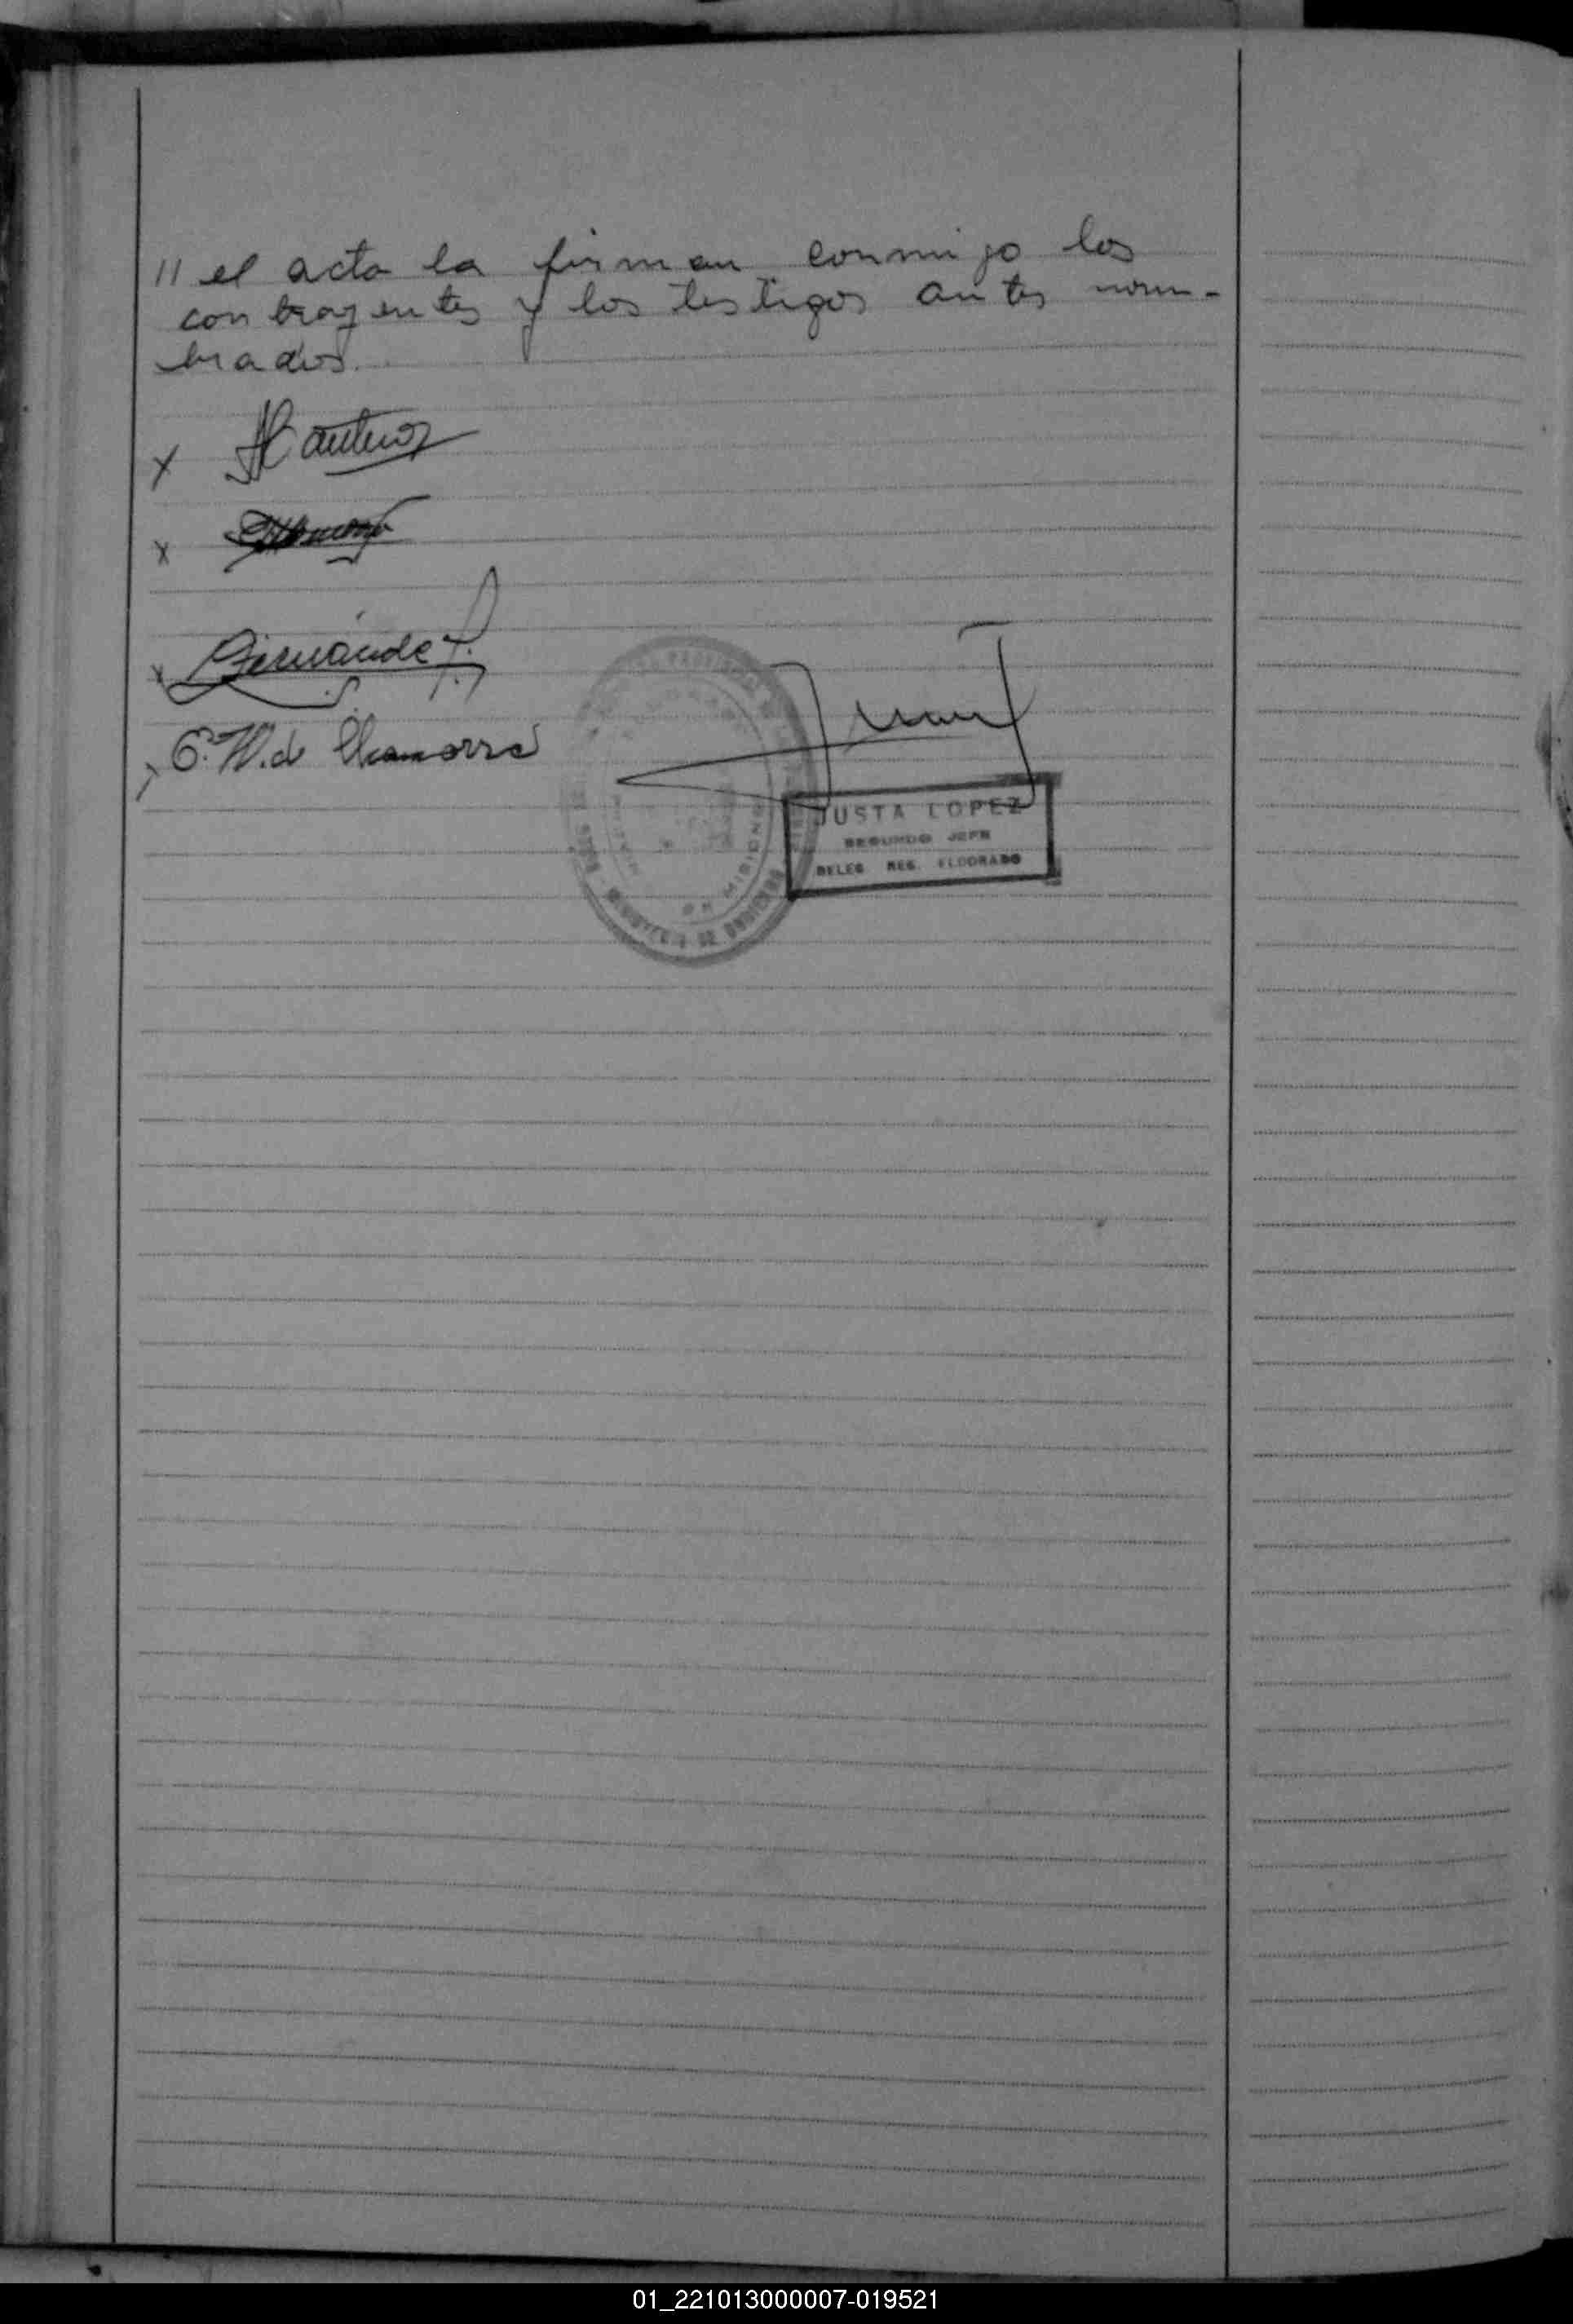 // el acta la firman conmigo los
contrayentes y los testigos antes nom-
brados.
x
x
x Fernández
x E. W. de Chamorro
JUSTA LOPEZ
SEGUNDO JEFE
DELEG. REG. ELDORADO
MISIONES
01_221013000007-019521